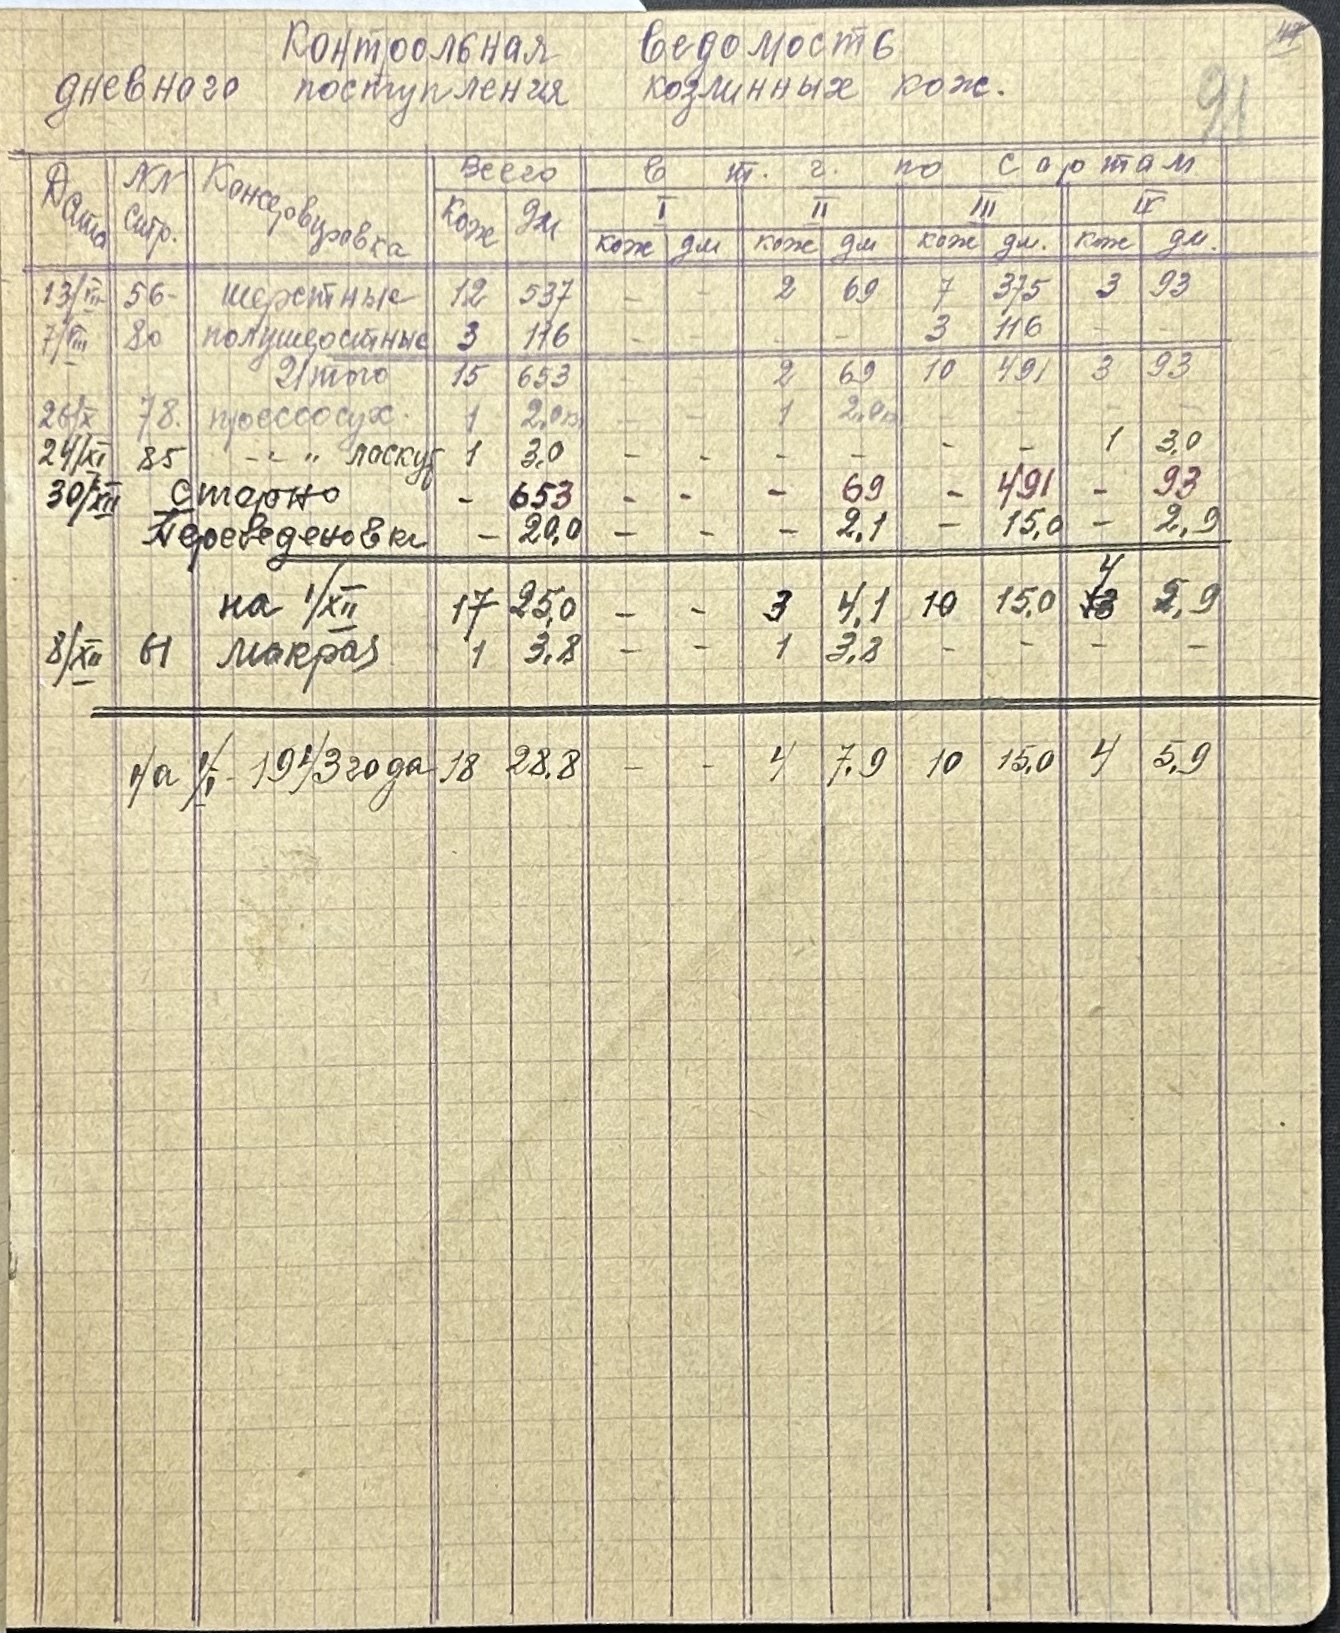 Контрольная ведомость
дневного поступления козлинных кож.
91
Дата NN стр. Консервуровка Всего в т. г. по сортам
кож дм I II III IV
кож дм кож дм кож дм. кож дм.
13/III 56- шерстные 12 537 - - 2 69 7 375 3 93
7/VIII 80 полушерстные 3 116 - - - - 3 116 - -
Итого 15 653 - - 2 69 10 491 3 93
26/X 78. прессосух. 1 2,0 - - 1 2,0 - - - -
24/XI 85 -"- " лоскут 1 3,0 - - - - - - 1 3,0
30/XII Старно - 653 - - - 69 - 491 - 93
Переведеновка - 20,0 - - - 2,1 - 15,0 - 2,9
на 1/XII 17 25,0 - - 3 4,1 10 15,0 4 5,9
8/XII 61 макраз 1 3,8 - - 1 3,8 - - - -
на 1/I - 1943 года 18 28.8 - - 4 7.9 10 15,0 4 5,9